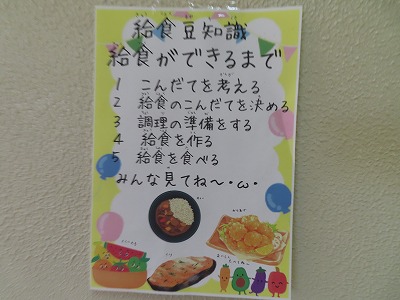 給食豆知識
給食ができるまで
1 こんだてを考える
2 給食のこんだてを決める
3 調理の準備をする
4 給食を作る
5 給食を食べる
みんな見てね〜・ω・